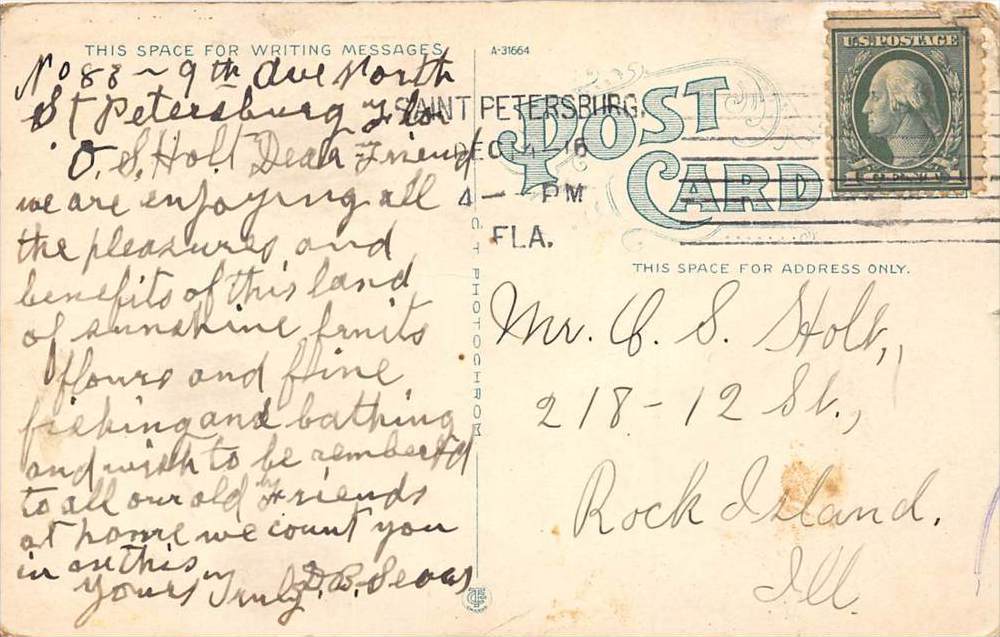 THIS SPACE FOR WRITING MESSAGES
No 88 ~ 9th Ave North
St Petersburg Flor
O. S. Holt Dear Friend
we are enjoying all
the pleasures and
benefits of this land
of sunshine fruits
flours and ffine
fishing and bathing
and wish to be rembertd
to all our old Friends
at home we count you
in on this
yours Truly D. B. Sears
A-31664
POST
CARD
SAINT PETERSBURG,
DEC 4 16
4 — PM
FLA.
U.S. POSTAGE
1 CENT 1
C T PHOTOCHROM
THIS SPACE FOR ADDRESS ONLY.
Mr. O. S. Holt,
218-12 St.,
Rock Island,
Ill.